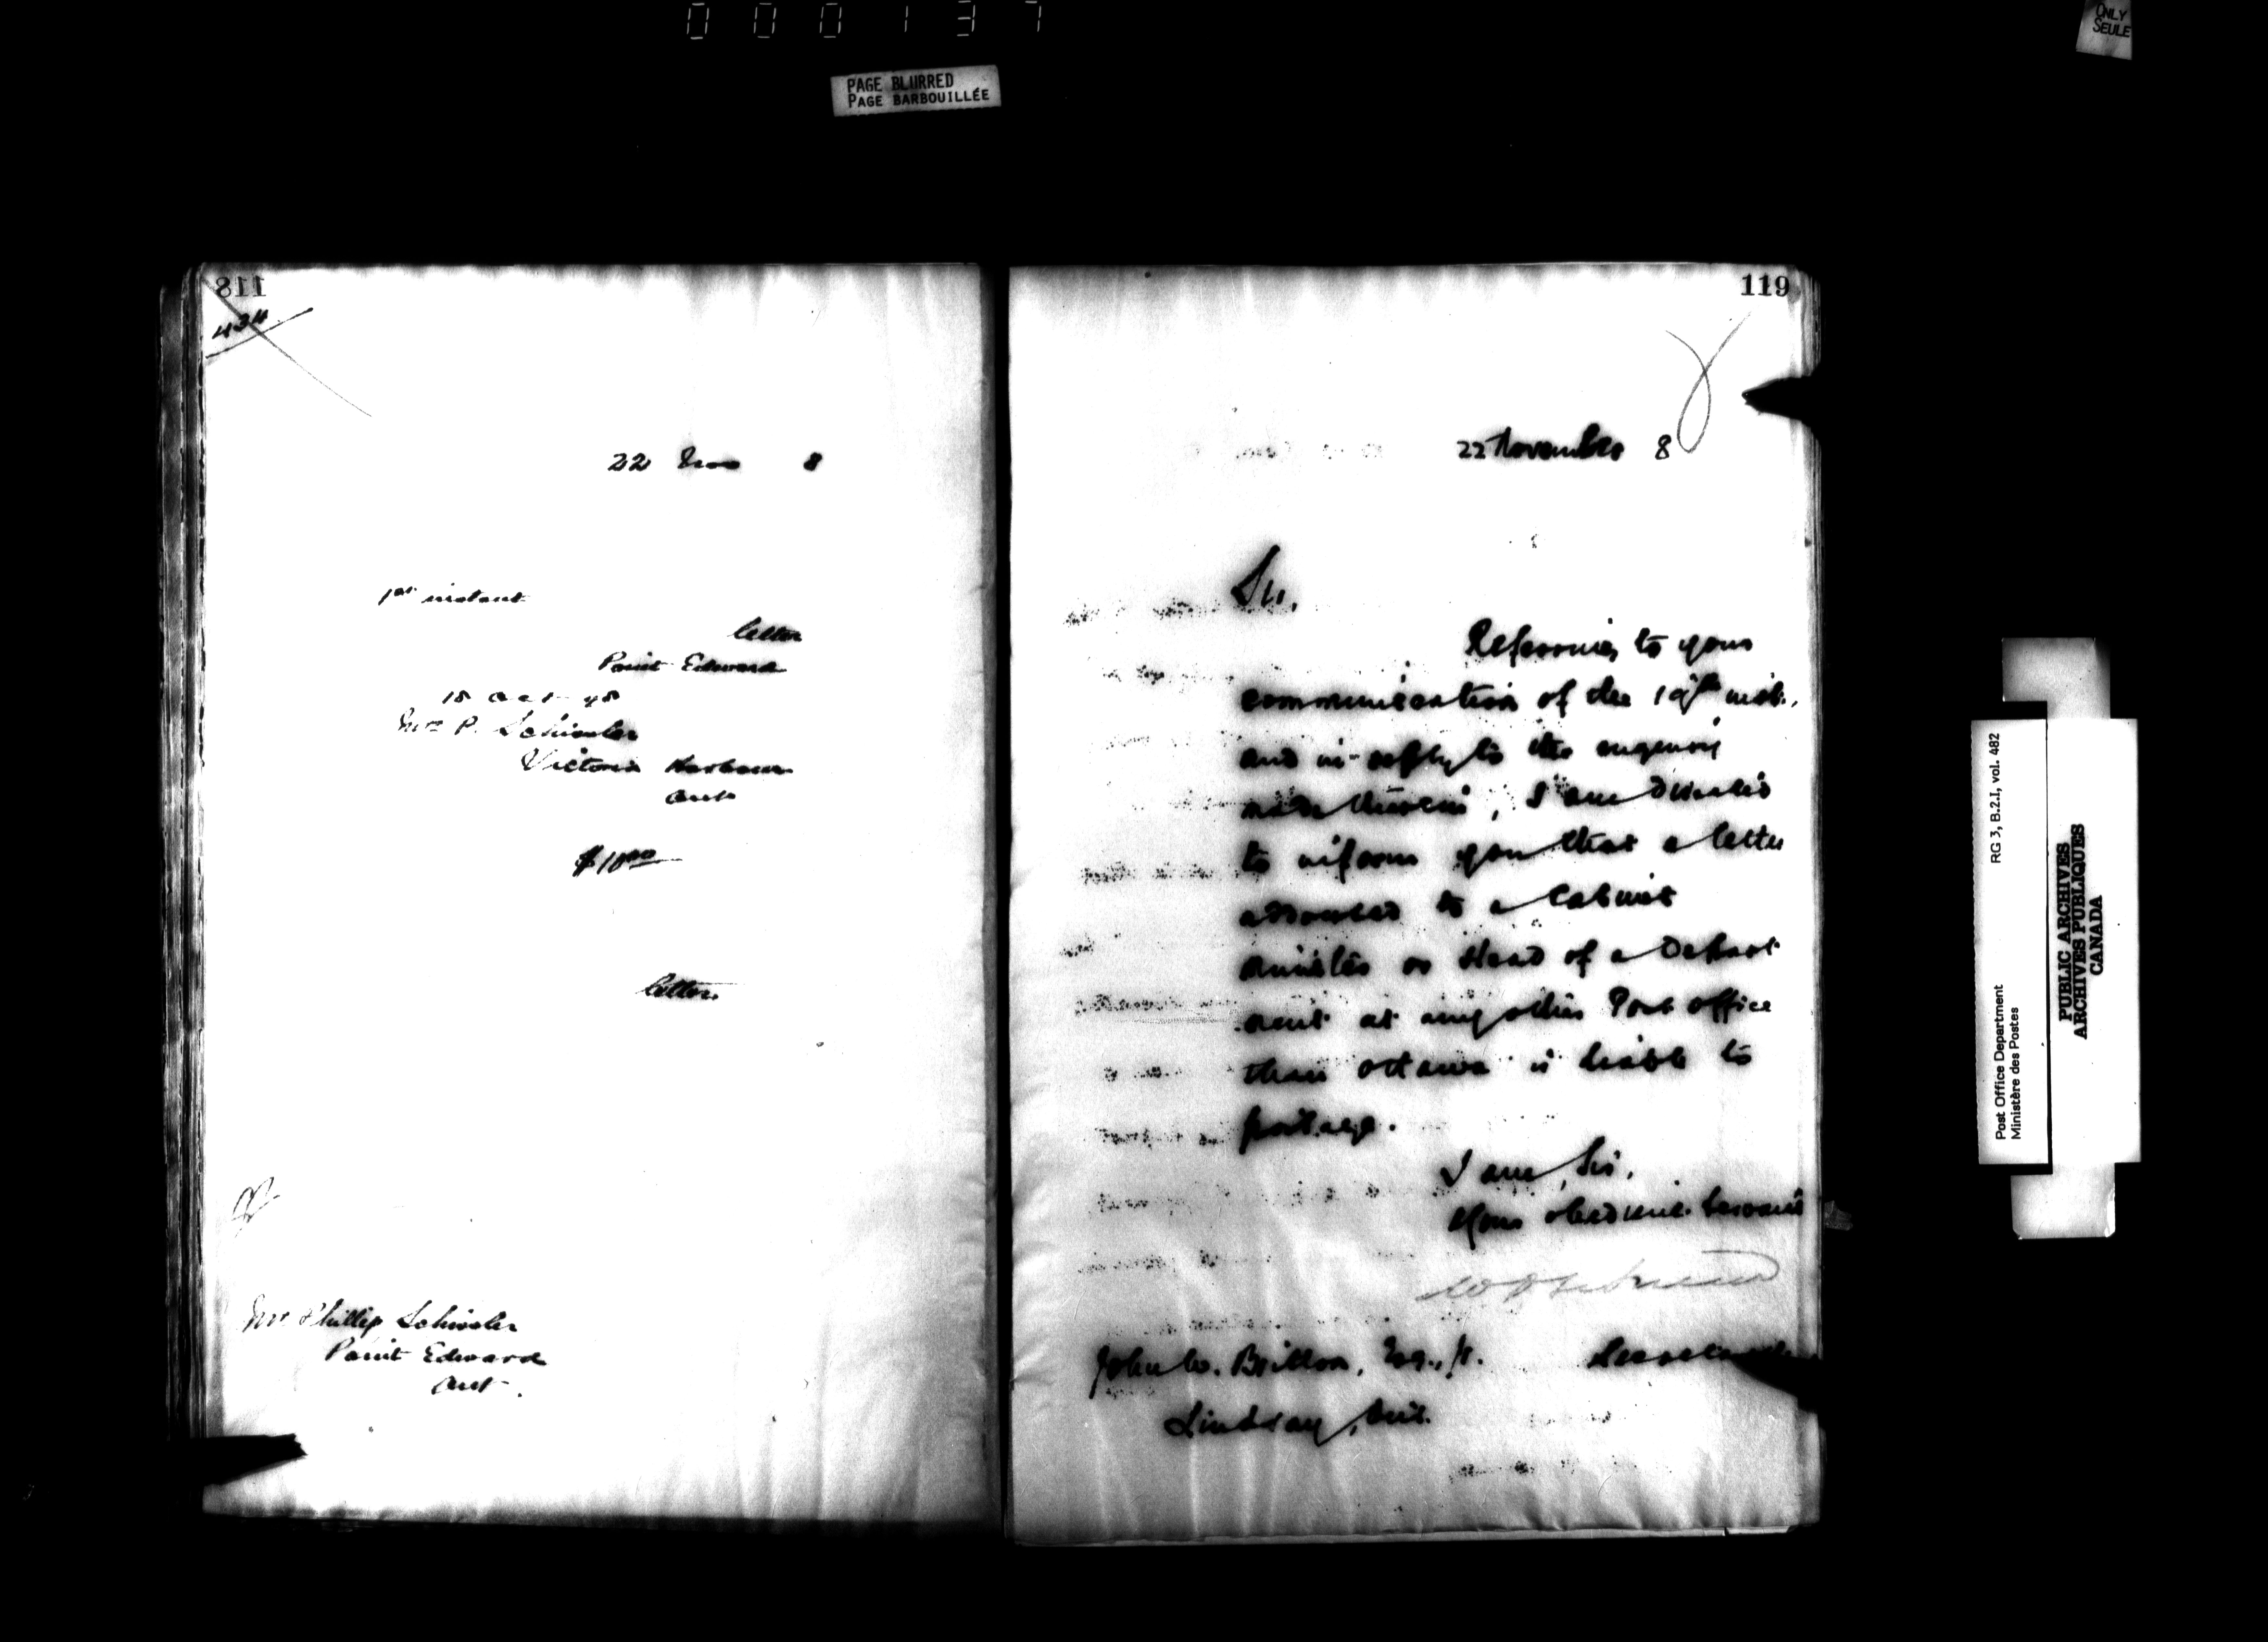 000137
PAGE BLURRED
PAGE BARBOUILLÉE
ONLY
SEULE
118
434
22 Nov 8
1st instant
letter
Point Edward
18 Oct 98
Mrs P. Schissler
Victoria Harbour
Ont
$10.00
letter
Mr Phillip Schissler
Point Edward
Ont.
119
22 November 8
Sir,
Referring to your
communication of the 19th inst.,
and in reply to the enquiry
made therein, I am directed
to inform you that a letter
addressed to a Cabinet
Minister or Head of a Depart
ment at any other Post Office
than Ottawa is liable to
postage.
I am, Sir,
Your obedient Servant
Secretary
John W. Britton, Esq., Jr.
Lindsay, Ont.
Post Office Department
Ministère des Postes
RG 3, B.2.I, vol. 482
PUBLIC ARCHIVES
ARCHIVES PUBLIQUES
CANADA